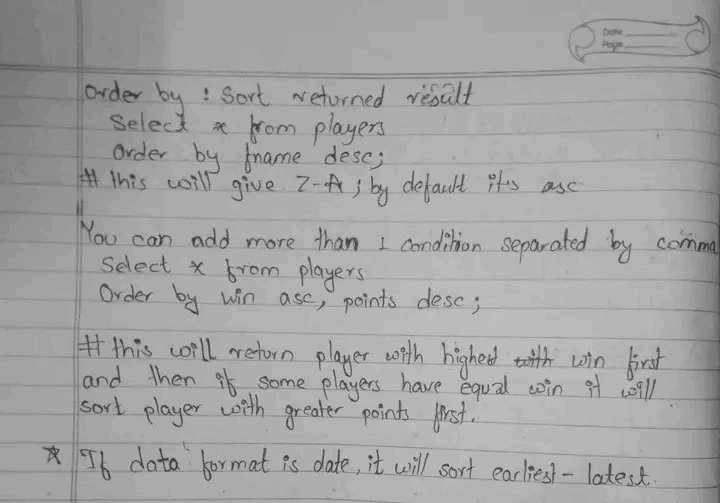 Date
Page
Order by : Sort returned result
Select * from players
Order by fname desc;
# this will give Z-A ; by default it's asc
You can add more than 1 condition separated by comma
Select * from players
Order by win asc, points desc;
# this will return player with highest with win first
and then if some players have equal win it will
sort player with greater points first.
* If data format is date, it will sort earliest - latest.